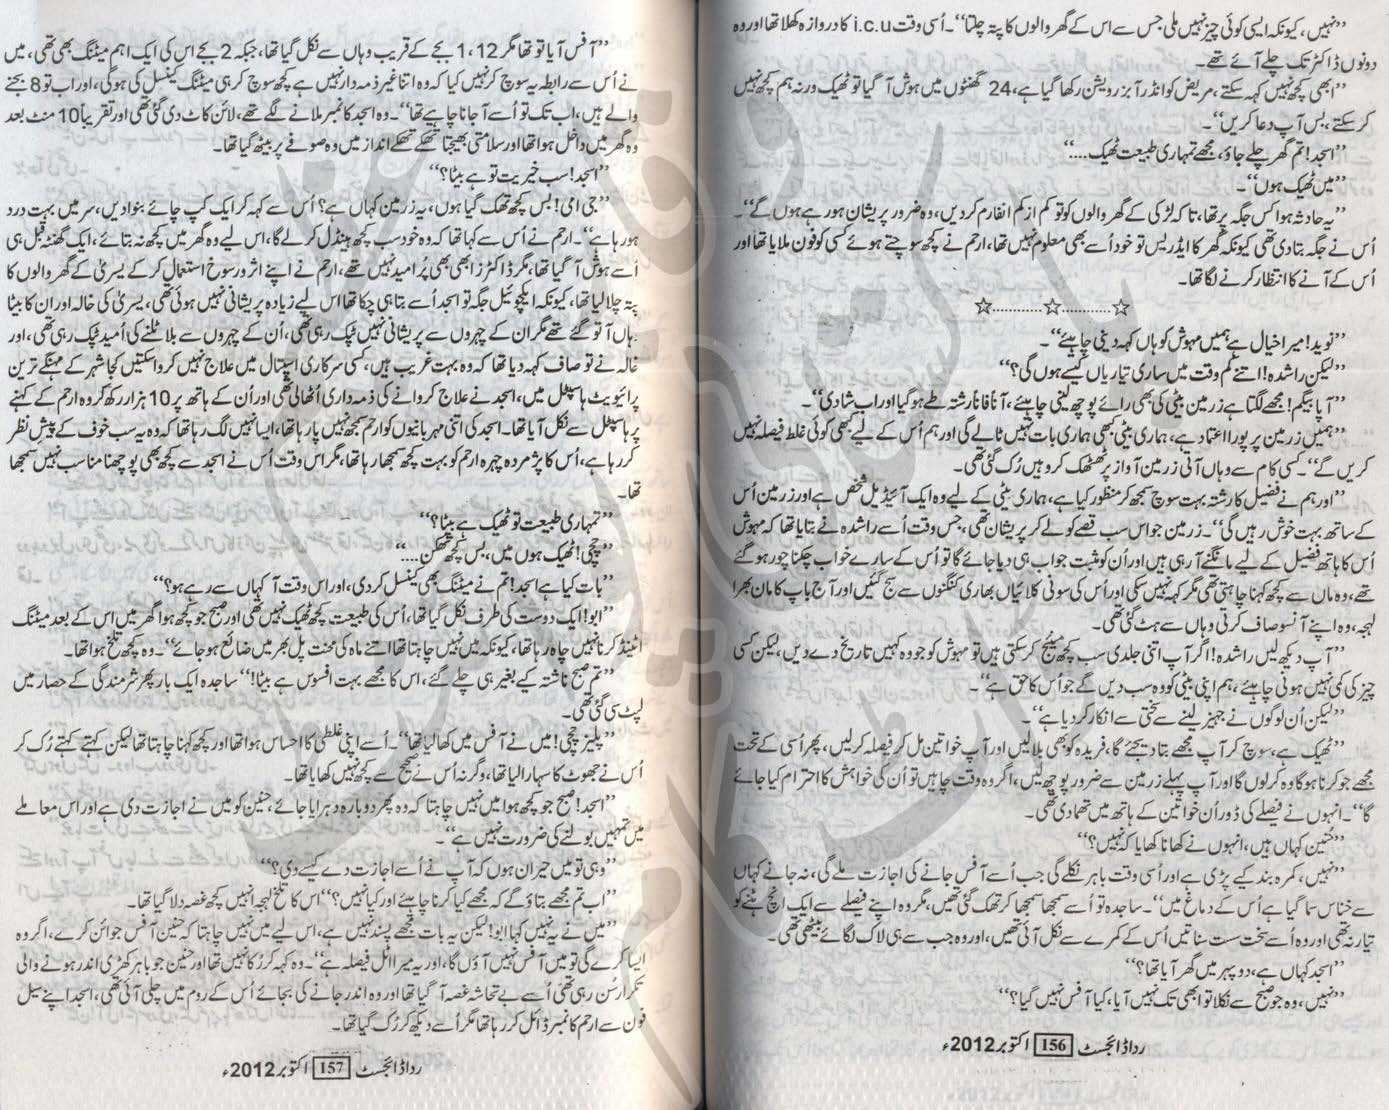 ’’نہیں، کیونکہ ایسی کوئی چیز نہیں ملی جس سے اس کے گھر والوں کا پتہ چلتا‘‘۔ اُسی وقت i.c.u کا دروازہ کھلا تھا اور وہ
دونوں ڈاکٹر تک چلے آئے تھے۔
’’ابھی کچھ نہیں کہہ سکتے، مریض کو انڈر آبزرویشن رکھا گیا ہے، 24 گھنٹوں میں ہوش آ گیا تو ٹھیک ورنہ ہم کچھ نہیں
کر سکتے، بس آپ دعا کریں‘‘۔
’’اسجد! تم گھر چلے جاؤ، مجھے تمہاری طبیعت ٹھیک....‘‘
’’میں ٹھیک ہوں‘‘۔
’’یہ حادثہ ہوا کس جگہ پر تھا، تاکہ لڑکی کے گھر والوں کو تو کم از کم انفارم کر دیں، وہ ضرور پریشان ہو رہے ہوں گے‘‘۔
اُس نے جگہ بتا دی تھی کیونکہ گھر کا ایڈریس تو خود اُسے بھی معلوم نہیں تھا، ارحم نے کچھ سوچتے ہوئے کسی کو فون ملایا تھا اور
اُس کے آنے کا انتظار کرنے لگا تھا۔
☆..........☆..........☆
’’نوید! میرا خیال ہے ہمیں مہوش کو ہاں کہہ دینی چاہیئے‘‘۔
’’لیکن راشدہ! اتنے کم وقت میں ساری تیاریاں کیسے ہوں گی؟‘‘
’’آپا بیگم! مجھے لگتا ہے زرمین بیٹی کی بھی رائے پوچھ لینی چاہیئے، آناً فاناً رشتہ طے ہو گیا اور اب شادی‘‘۔
’’ہمیں زرمین پر پورا اعتماد ہے، ہماری بیٹی کبھی ہماری بات نہیں ٹالے گی اور ہم اُس کے لیے بھی کوئی غلط فیصلہ نہیں
کریں گے‘‘۔ کسی کام سے وہاں آتی زرمین آواز پر ٹھٹک کر وہیں رُک گئی تھی۔
’’اور ہم نے فضیل کا رشتہ بہت سوچ سمجھ کر منظور کیا ہے، ہماری بیٹی کے لیے وہ ایک آئیڈیل شخص ہے اور زرمین اُس
کے ساتھ بہت خوش رہیں گی‘‘۔ زرمین جو اس سب قصے کو لے کر پریشان تھی، جس وقت اُسے راشدہ نے بتایا تھا کہ مہوش
اُس کا ہاتھ فضیل کے لیے مانگنے آ رہی ہیں اور اُن کو مثبت جواب ہی دیا جائے گا تو اُس کے سارے خواب چکنا چور ہو گئے
تھے، وہ ماں سے کچھ کہنا چاہتی تھی مگر کہہ نہیں سکی اور اُس کی سونی کلائیاں بھاری کنگنوں سے سج گئیں اور آج باپ کا مان بھرا
لہجہ، وہ اپنے آنسو صاف کرتی وہاں سے ہٹ گئی تھی۔
’’آپ دیکھ لیں راشدہ! اگر آپ اتنی جلدی سب کچھ مینج کر سکتی ہیں تو مہوش کو جو وہ کہیں تاریخ دے دیں، لیکن کسی
چیز کی کمی نہیں ہونی چاہیئے، ہم اپنی بیٹی کو وہ سب دیں گے جو اُس کا حق ہے‘‘۔
’’لیکن اُن لوگوں نے جہیز لینے سے سختی سے انکار کر دیا ہے‘‘۔
’’ٹھیک ہے، سوچ کر آپ مجھے بتا دیجئے گا، فریدہ کو بھی بلا لیں اور آپ خواتین مل کر فیصلہ کر لیں، پھر اُسی کے تحت
مجھے جو کرنا ہو گا وہ کر لوں گا اور آپ پہلے زرمین سے ضرور پوچھ لیں، اگر وہ وقت چاہیں تو اُن کی خواہش کا احترام کیا جائے
گا‘‘۔ انہوں نے فیصلے کی ڈور اُن خواتین کے ہاتھ میں تھما دی تھی۔
’’حُنین کہاں ہیں، انہوں نے کھانا کھایا کہ نہیں؟‘‘
’’نہیں، کمرہ بند کیے پڑی ہے اور اُسی وقت باہر نکلے گی جب اُسے آفس جانے کی اجازت ملے گی، نہ جانے کہاں
سے خناس سما گیا ہے اُس کے دماغ میں‘‘۔ ساجدہ تو اُسے سمجھا سمجھا کر تھک گئی تھیں، مگر وہ اپنے فیصلے سے ایک انچ ہٹنے کو
تیار نہ تھی اور وہ اُسے سخت سست سناتیں اُس کے کمرے سے نکل آئی تھیں، اور وہ جب سے ہی لاک لگائے بیٹھی تھی۔
’’اسجد کہاں ہے، دوپہر میں گھر آیا تھا؟‘‘
’’نہیں، وہ جو صبح سے نکلا تو ابھی تک نہیں آیا، کیا آفس نہیں گیا؟‘‘
رداڈائجسٹ 156 اکتوبر 2012ء
’’آفس آیا تو تھا مگر 12، 1 بجے کے قریب وہاں سے نکل گیا تھا، جبکہ 2 بجے اس کی ایک اہم میٹنگ بھی تھی، میں
نے اُس سے رابطہ یہ سوچ کر نہیں کیا کہ وہ اتنا غیر ذمہ دار نہیں ہے کچھ سوچ کر ہی میٹنگ کینسل کی ہو گی، اور اب تو 8 بجنے
والے ہیں، اب تک تو اُسے آ جانا چاہیے تھا‘‘۔ وہ اسجد کا نمبر ملانے لگے تھے، لائن کاٹ دی گئی تھی اور تقریباً 10 منٹ بعد
وہ گھر میں داخل ہوا تھا اور سلامتی بھیجتا تھکے تھکے انداز میں وہ صوفے پر بیٹھ گیا تھا۔
’’اسجد! سب خیریت تو ہے بیٹا؟‘‘
’’جی امی! بس کچھ تھک گیا ہوں، یہ زرمین کہاں ہے؟ اُس سے کہہ کر ایک کپ چائے بنوا دیں، سر میں بہت درد
ہو رہا ہے‘‘۔ ارحم نے اُس سے کہا تھا کہ وہ خود سب کچھ ہینڈل کر لے گا، اس لیے وہ گھر میں کچھ نہ بتائے، ایک گھنٹہ قبل ہی
اُسے ہوش آ گیا تھا، مگر ڈاکٹرز ابھی بھی پُر امید نہیں تھے، ارحم نے اپنے اثر و رسوخ استعمال کر کے یسریٰ کے گھر والوں کا
پتہ چلا لیا تھا، کیونکہ ایکچوئیل جگہ تو اسجد اُسے بتا ہی چکا تھا اس لیے زیادہ پریشانی نہیں ہوئی تھی، یسریٰ کی خالہ اور ان کا بیٹا
ہاں آ تو گئے تھے مگر ان کے چہروں سے پریشانی نہیں ٹپک رہی تھی، اُن کے چہروں سے بلا ٹلنے کی اُمید ٹپک رہی تھی، اور
خالہ نے تو صاف کہہ دیا تھا کہ وہ بہت غریب ہیں، کسی سرکاری اسپتال میں علاج نہیں کروا سکتیں کجا شہر کے مہنگے ترین
پرائیویٹ ہاسپٹل میں، اسجد نے علاج کروانے کی ذمہ داری اُٹھا لی تھی اور اُن کے ہاتھ پر 10 ہزار رکھ کر وہ ارحم کے کہنے
پر ہاسپٹل سے نکل آیا تھا۔ اسجد کی اتنی مہربانیوں کو ارحم سمجھ نہیں پا رہا تھا، ایسا نہیں لگ رہا تھا کہ وہ یہ سب خوف کے پیشِ نظر
کر رہا ہے، اُس کا پژمردہ چہرہ ارحم کو بہت کچھ سمجھا رہا تھا، مگر اس وقت اُس نے اسجد سے کچھ بھی پوچھنا مناسب نہیں سمجھا
تھا۔
’’تمہاری طبیعت تو ٹھیک ہے بیٹا؟‘‘
’’چچی! ٹھیک ہوں میں، بس کچھ تھکن....‘‘
’’بات کیا ہے اسجد! تم نے میٹنگ بھی کینسل کر دی، اور اس وقت آ کہاں سے رہے ہو؟‘‘
’’ابو! ایک دوست کی طرف نکل گیا تھا، اُس کی طبیعت کچھ ٹھیک نہیں تھی اور صبح جو کچھ ہوا گھر میں اس کے بعد میٹنگ
اٹینڈ کرنا نہیں چاہ رہا تھا، کیونکہ میں نہیں چاہتا تھا اتنے ماہ کی محنت پل بھر میں ضائع ہو جائے‘‘۔ وہ کچھ تلخ ہوا تھا۔
’’تم صبح ناشتہ کیے بغیر ہی چلے گئے، اس کا مجھے بہت افسوس ہے بیٹا!‘‘ ساجدہ ایک بار پھر شرمندگی کے حصار میں
لپٹ سی گئی تھی۔
’’پلیز چچی! میں نے آفس میں کھا لیا تھا‘‘۔ اُسے اپنی غلطی کا احساس ہوا تھا اور کچھ کہنا چاہتا تھا لیکن کہتے کہتے رُک کر
اُس نے جھوٹ کا سہارا لیا تھا، وگرنہ اُس نے صبح سے کچھ نہیں کھایا تھا۔
’’اسجد! صبح جو کچھ ہوا میں نہیں چاہتا کہ وہ پھر دوبارہ دہرایا جائے، حنین کو میں نے اجازت دی ہے اور اس معاملے
میں تمہیں بولنے کی ضرورت نہیں ہے‘‘۔
’’وہی تو میں حیران ہوں کہ آپ نے اُسے اجازت دے کیسے دی؟‘‘
’’اب تم مجھے بتاؤ گے کہ مجھے کیا کرنا چاہیئے اور کیا نہیں؟‘‘ اُس کا تلخ لہجہ انہیں کچھ غصہ دلا گیا تھا۔
’’میں نے یہ نہیں کہا ابو! لیکن یہ بات مجھے پسند نہیں ہے، اس لیے میں نہیں چاہتا کہ حنین آفس جوائن کرے، اگر وہ
ایسا کرے گی تو میں آفس نہیں آؤں گا، اور یہ میرا اٹل فیصلہ ہے‘‘۔ وہ کہہ کر رُکا نہیں تھا اور حنین جو باہر کھڑی اندر ہونے والی
تکرار سُن رہی تھی اُسے بے تحاشہ غصہ آ گیا تھا اور وہ اندر جانے کی بجائے اُس کے روم میں چلی آئی تھی، اسجد اپنے سیل
فون سے ارحم کا نمبر ڈائل کر رہا تھا مگر اُسے دیکھ کر رُک گیا تھا۔
رداڈائجسٹ 157 اکتوبر 2012ء